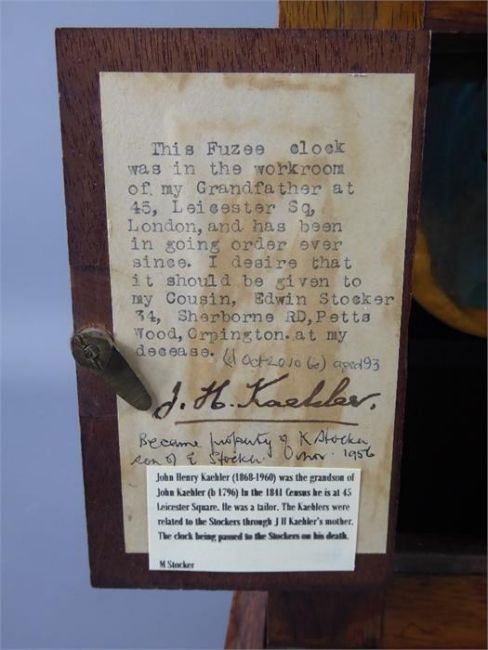 This Fuzee clock
was in the workroom
of my Grandfather at
45, Leicester Sq,
London, and has been
in going order ever
since. I desire that
it should be given to
my Cousin, Edwin Stocker
34, Sherborne RD, Petts
Wood, Orpington.at my
decease. Oct 2010 aged 93
J. H. Kaehler.
Became property of K Stocker
son of E Stocker. 1956
John Henry Kaehler (1868-1960) was the grandson of
John Kaehler (b 1796) In the 1841 Census he is at 45
Leicester Square. He was a tailor. The Kaehlers were
related to the Stockers through J H Kaehler's mother.
The clock being passed to the Stockers on his death.
M Stocker